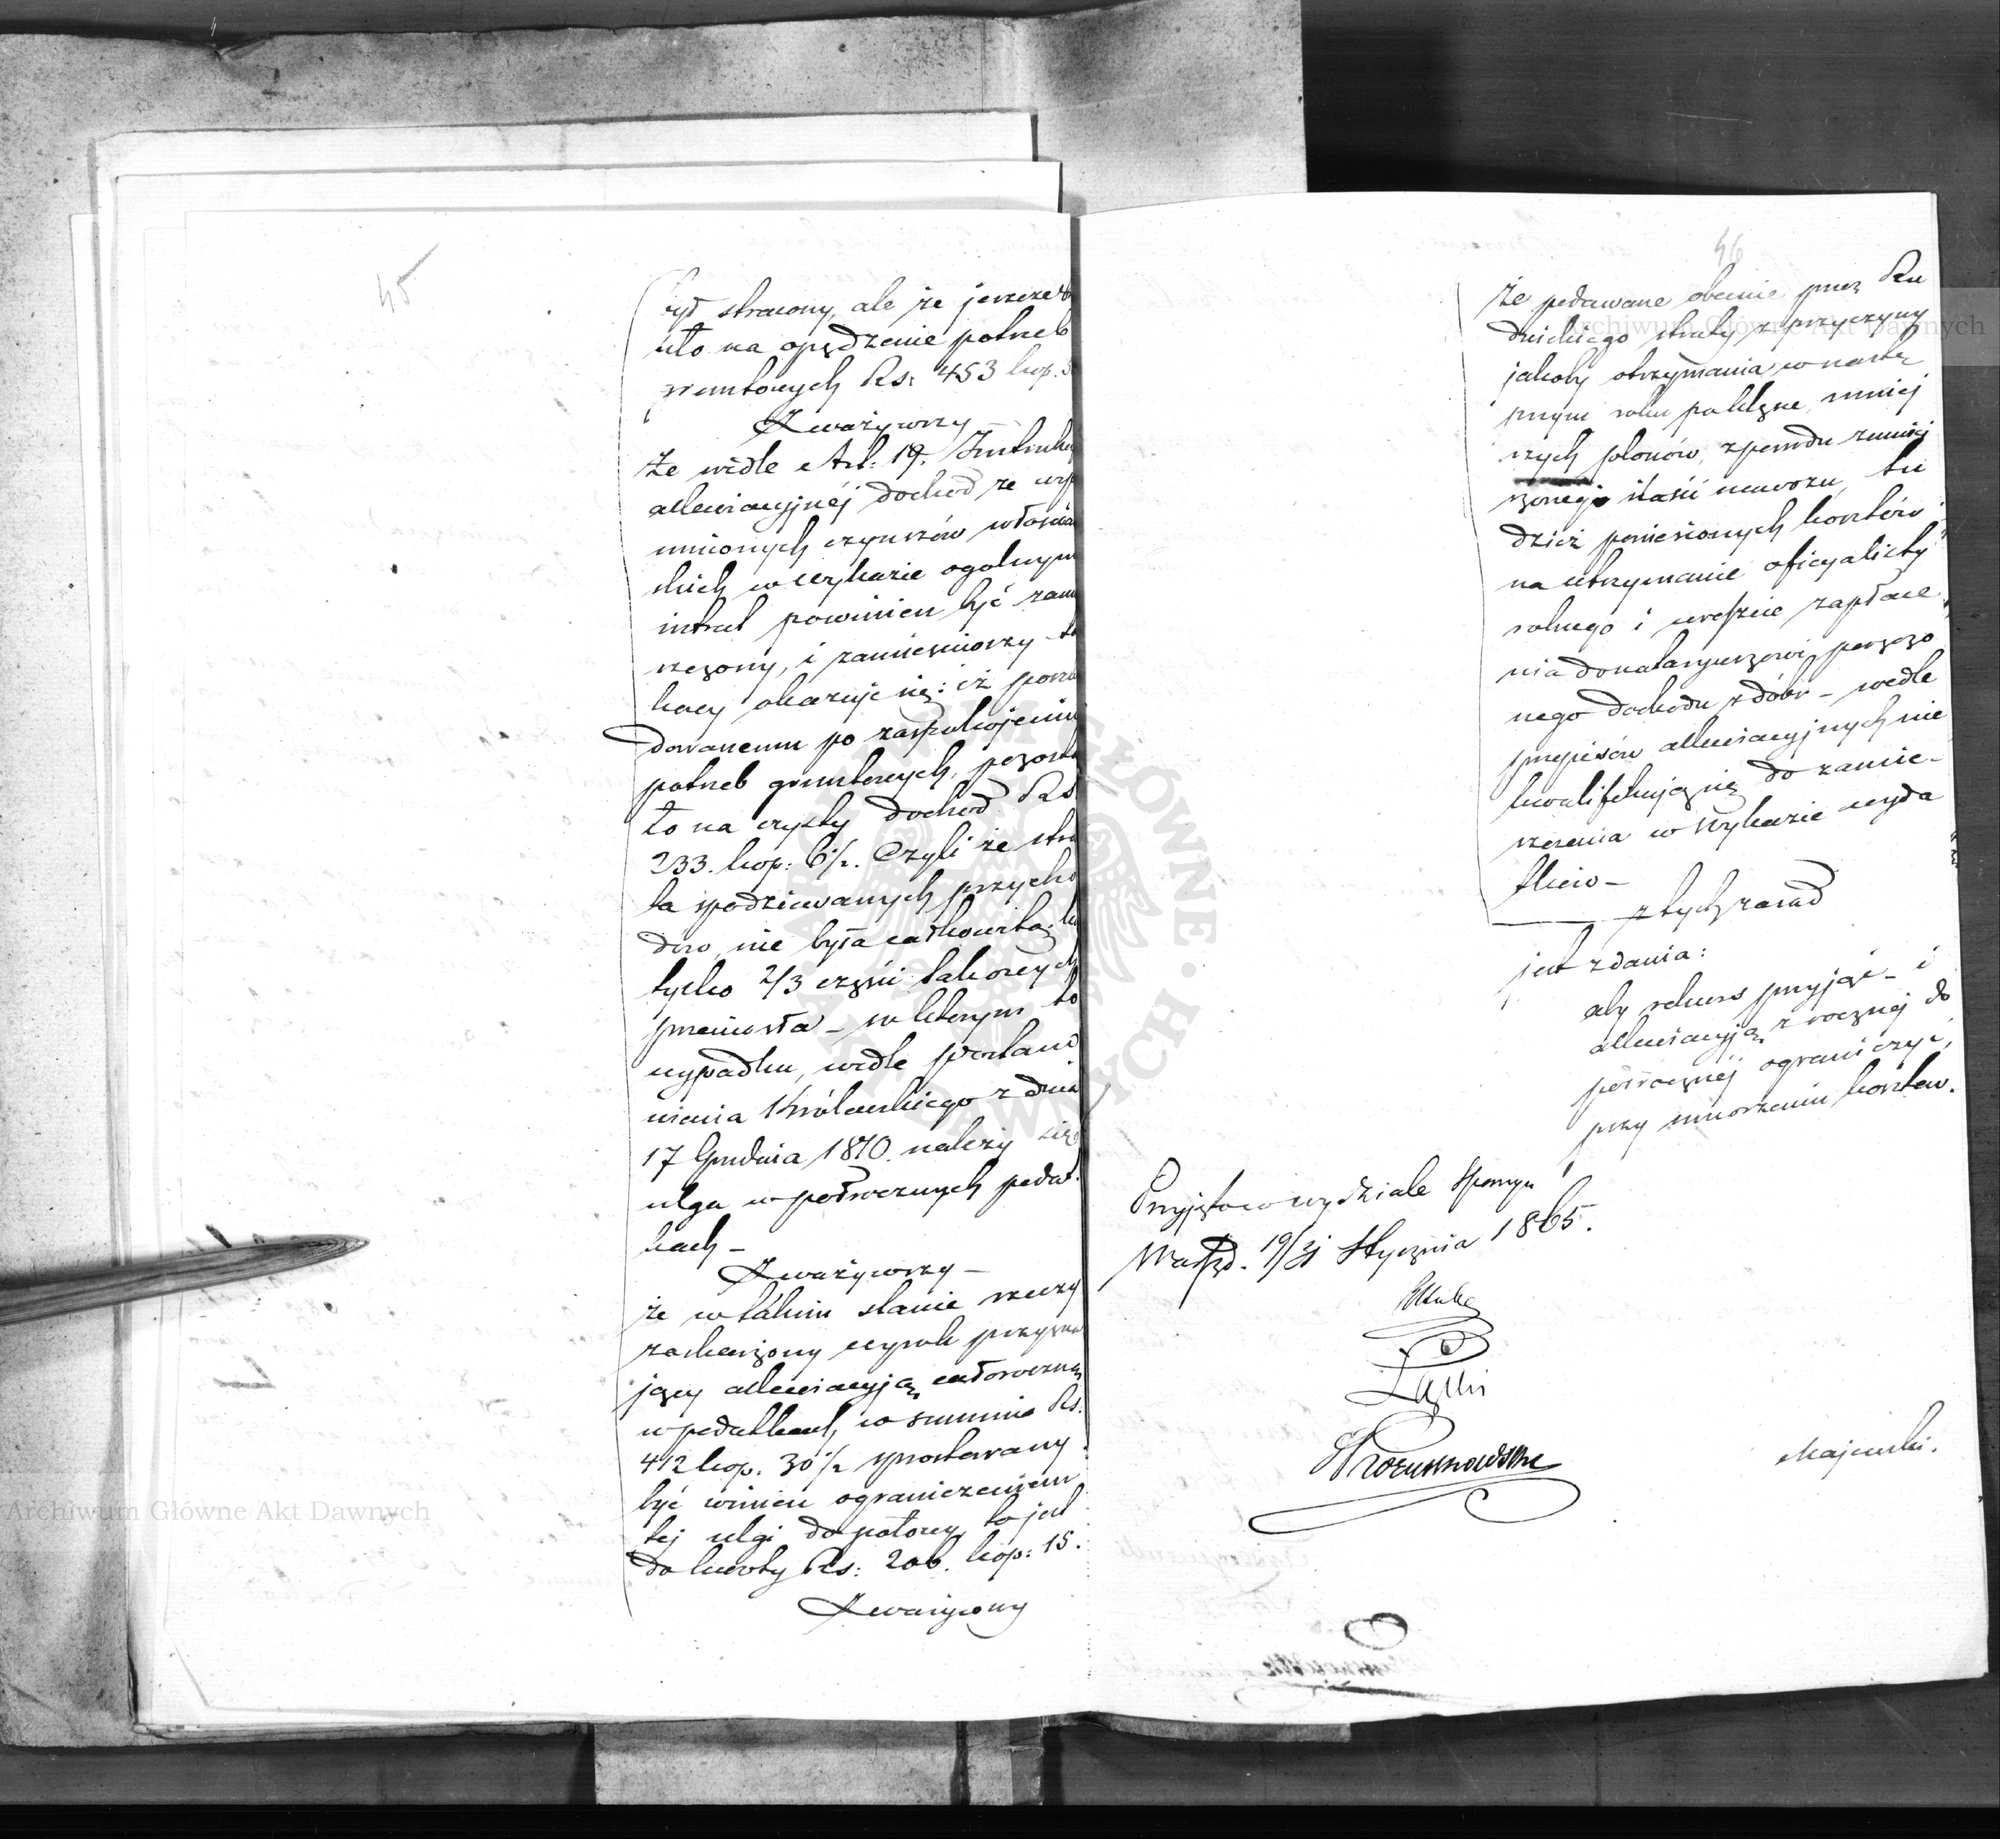 45
był stracony, ale że jeszcze
ło na opędzenie potrzeb
gruntowych Rs: 453 kop.
Zważywszy
że wedle Art: 19. Instrukcyi
allewiacyjnéj dochód ze wsp
mnionych czynszów włościań
skich w wykazie ogolnym
intrat powinien być zam
szczony, i zamieściwszy
kowy okazuje się: iż poszk
dowanemu po zaspokojeniu
potrzeb gruntowych, pozosta
ło na czysty dochód Rs
233. kop: 6½. Czyli że stra
ta spodziewanych przycho
dów, nie była całkowitą, le
tylko 2/3 części takowych
przeniosła – w którym to
wypadku, wedle postano
wienia Królewskiego z dnia
17 Grudnia 1810. należy się
ulga w półrocznych podat
kach –
Zważywszy –
że w takim stanie rzeczy
zaskarżony wyrok przyzna
jący allewiacyją całoroczną
w podatkach, w summie Rs.
412 kop. 30½ sprostowany
być winien ograniczeniem
tej ulgi do połowy, to jest
do kwoty Rs: 206. kop: 15.
Zważywszy
46
że podawane obecnie przez Ru
dnickiego straty z przyczyny
jakoby otrzymania w nastę
pnym roku pokłęsce, mniej
szych plonów, z powodu zmniej
szonego ilości nawozu, tu
dzież poniesionych kosztów
na utrzymanie oficyalisty
rolnego i wreszcie zapłace
nia donataryuszowi
nego dochodu z dóbr – wedle
przepisów allewiacyjnych nie
kwalifikują się do zamie-
szczenia w wykazie wyda
tków –
z tych zasad
jest zdania:
aby rekurs przyjąć – i
allewiacyją z rocznej do
półrocznéj ograniczyć,
przy umorzeniu kosztów.
Przyjęto w wydziale Spornym
Warsz. 19/31 Stycznia 1865.
Łąski
Majewski.
Archiwum Główne Akt Dawnych
Archiwum Główne Akt Dawnych
ARCHIWUM GŁÓWNE AKT DAWNYCH